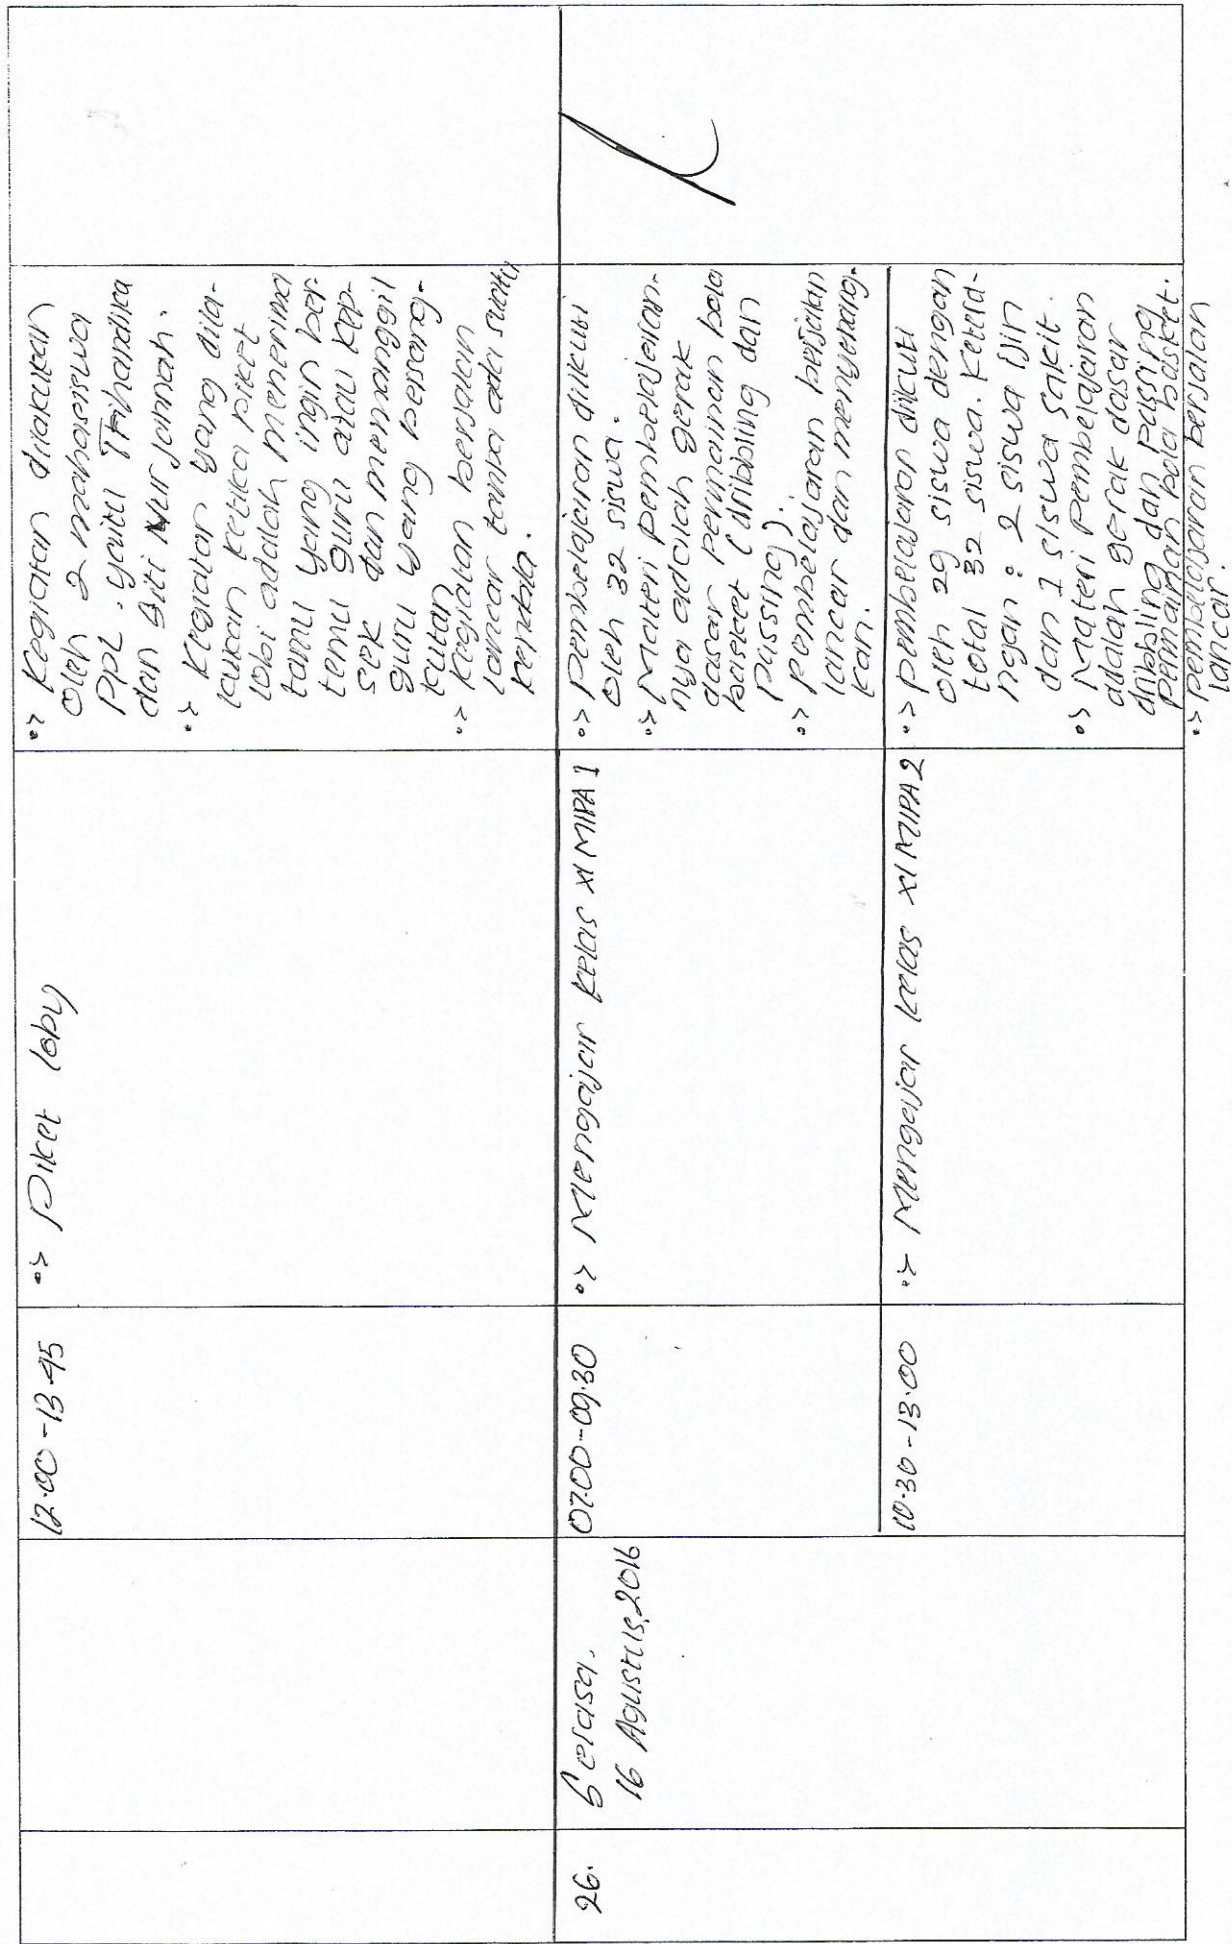 12.00 - 13.45
•> Piket loby
•> Kegiatan dilakukan
Oleh 2 mahasiswa
PPL. yaitu Trihandika
dan Siti Nurjannah.
•> Kegiatan yang dila-
kukan ketika piket
lobi adalah menerima
tamu yang ingin ber-
temu guru atau kep-
sek dan memanggil
guru yang bersang-
kutan
•> Kegiatan berjalan
lancar tanpa ada suatu
kendala.
26.
Selasa.
16 Agustus 2016
07.00-09.30
•> Mengajar kelas XI MIPA 1
•> Pembelajaran diikuti
Oleh 32 siswa.
•> Materi pembelajaran-
nya adalah gerak
dasar permainan bola
basket (dribbling dan
passing).
•> Pembelajaran berjalan
lancar dan menyenang-
kan.
10.30 - 13.00
•> Mengajar kelas XI MIPA 2
•> Pembelajaran diikuti
oleh 29 siswa dengan
total 32 siswa. Ketera-
ngan : 2 siswa ijin
dan 1 siswa sakit.
•> Materi Pembelajaran
adalah gerak dasar
dribbling dan passing
permainan bola basket.
•> pembelajaran berjalan
lancar.